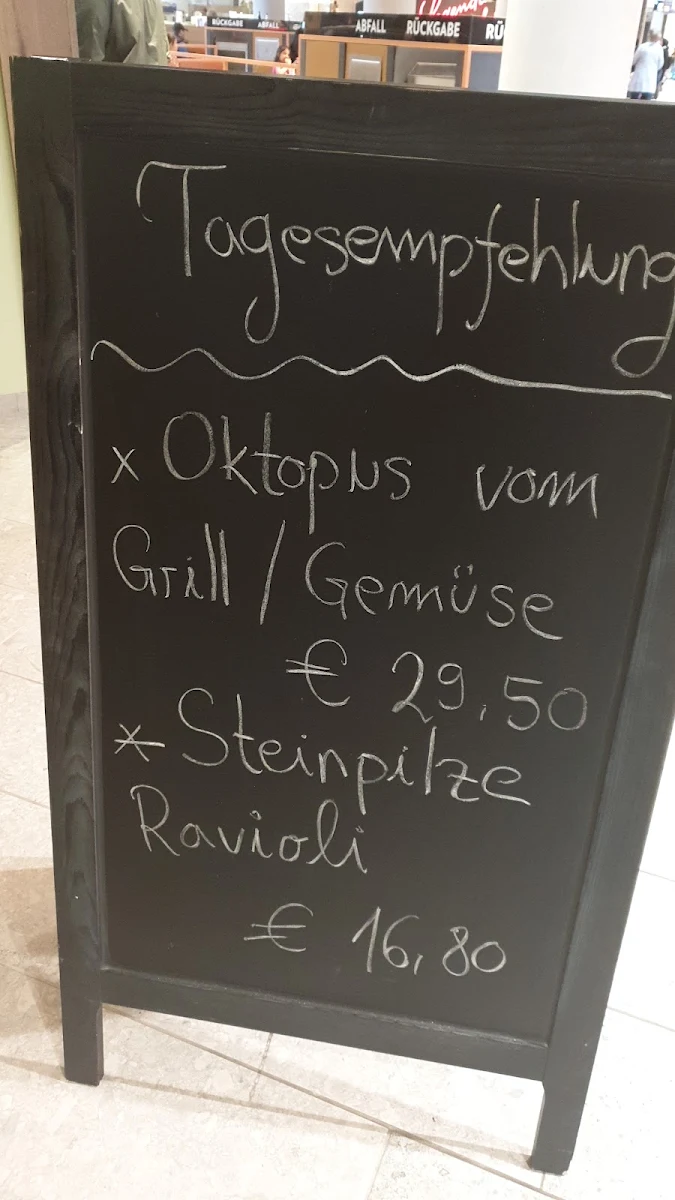 RÜCKGABE ABFALL ABFALL RÜCKGABE RÜ
Tagesempfehlung
x Oktopus vom
Grill / Gemüse
€ 29,50
* Steinpilze
Ravioli
€ 16,80